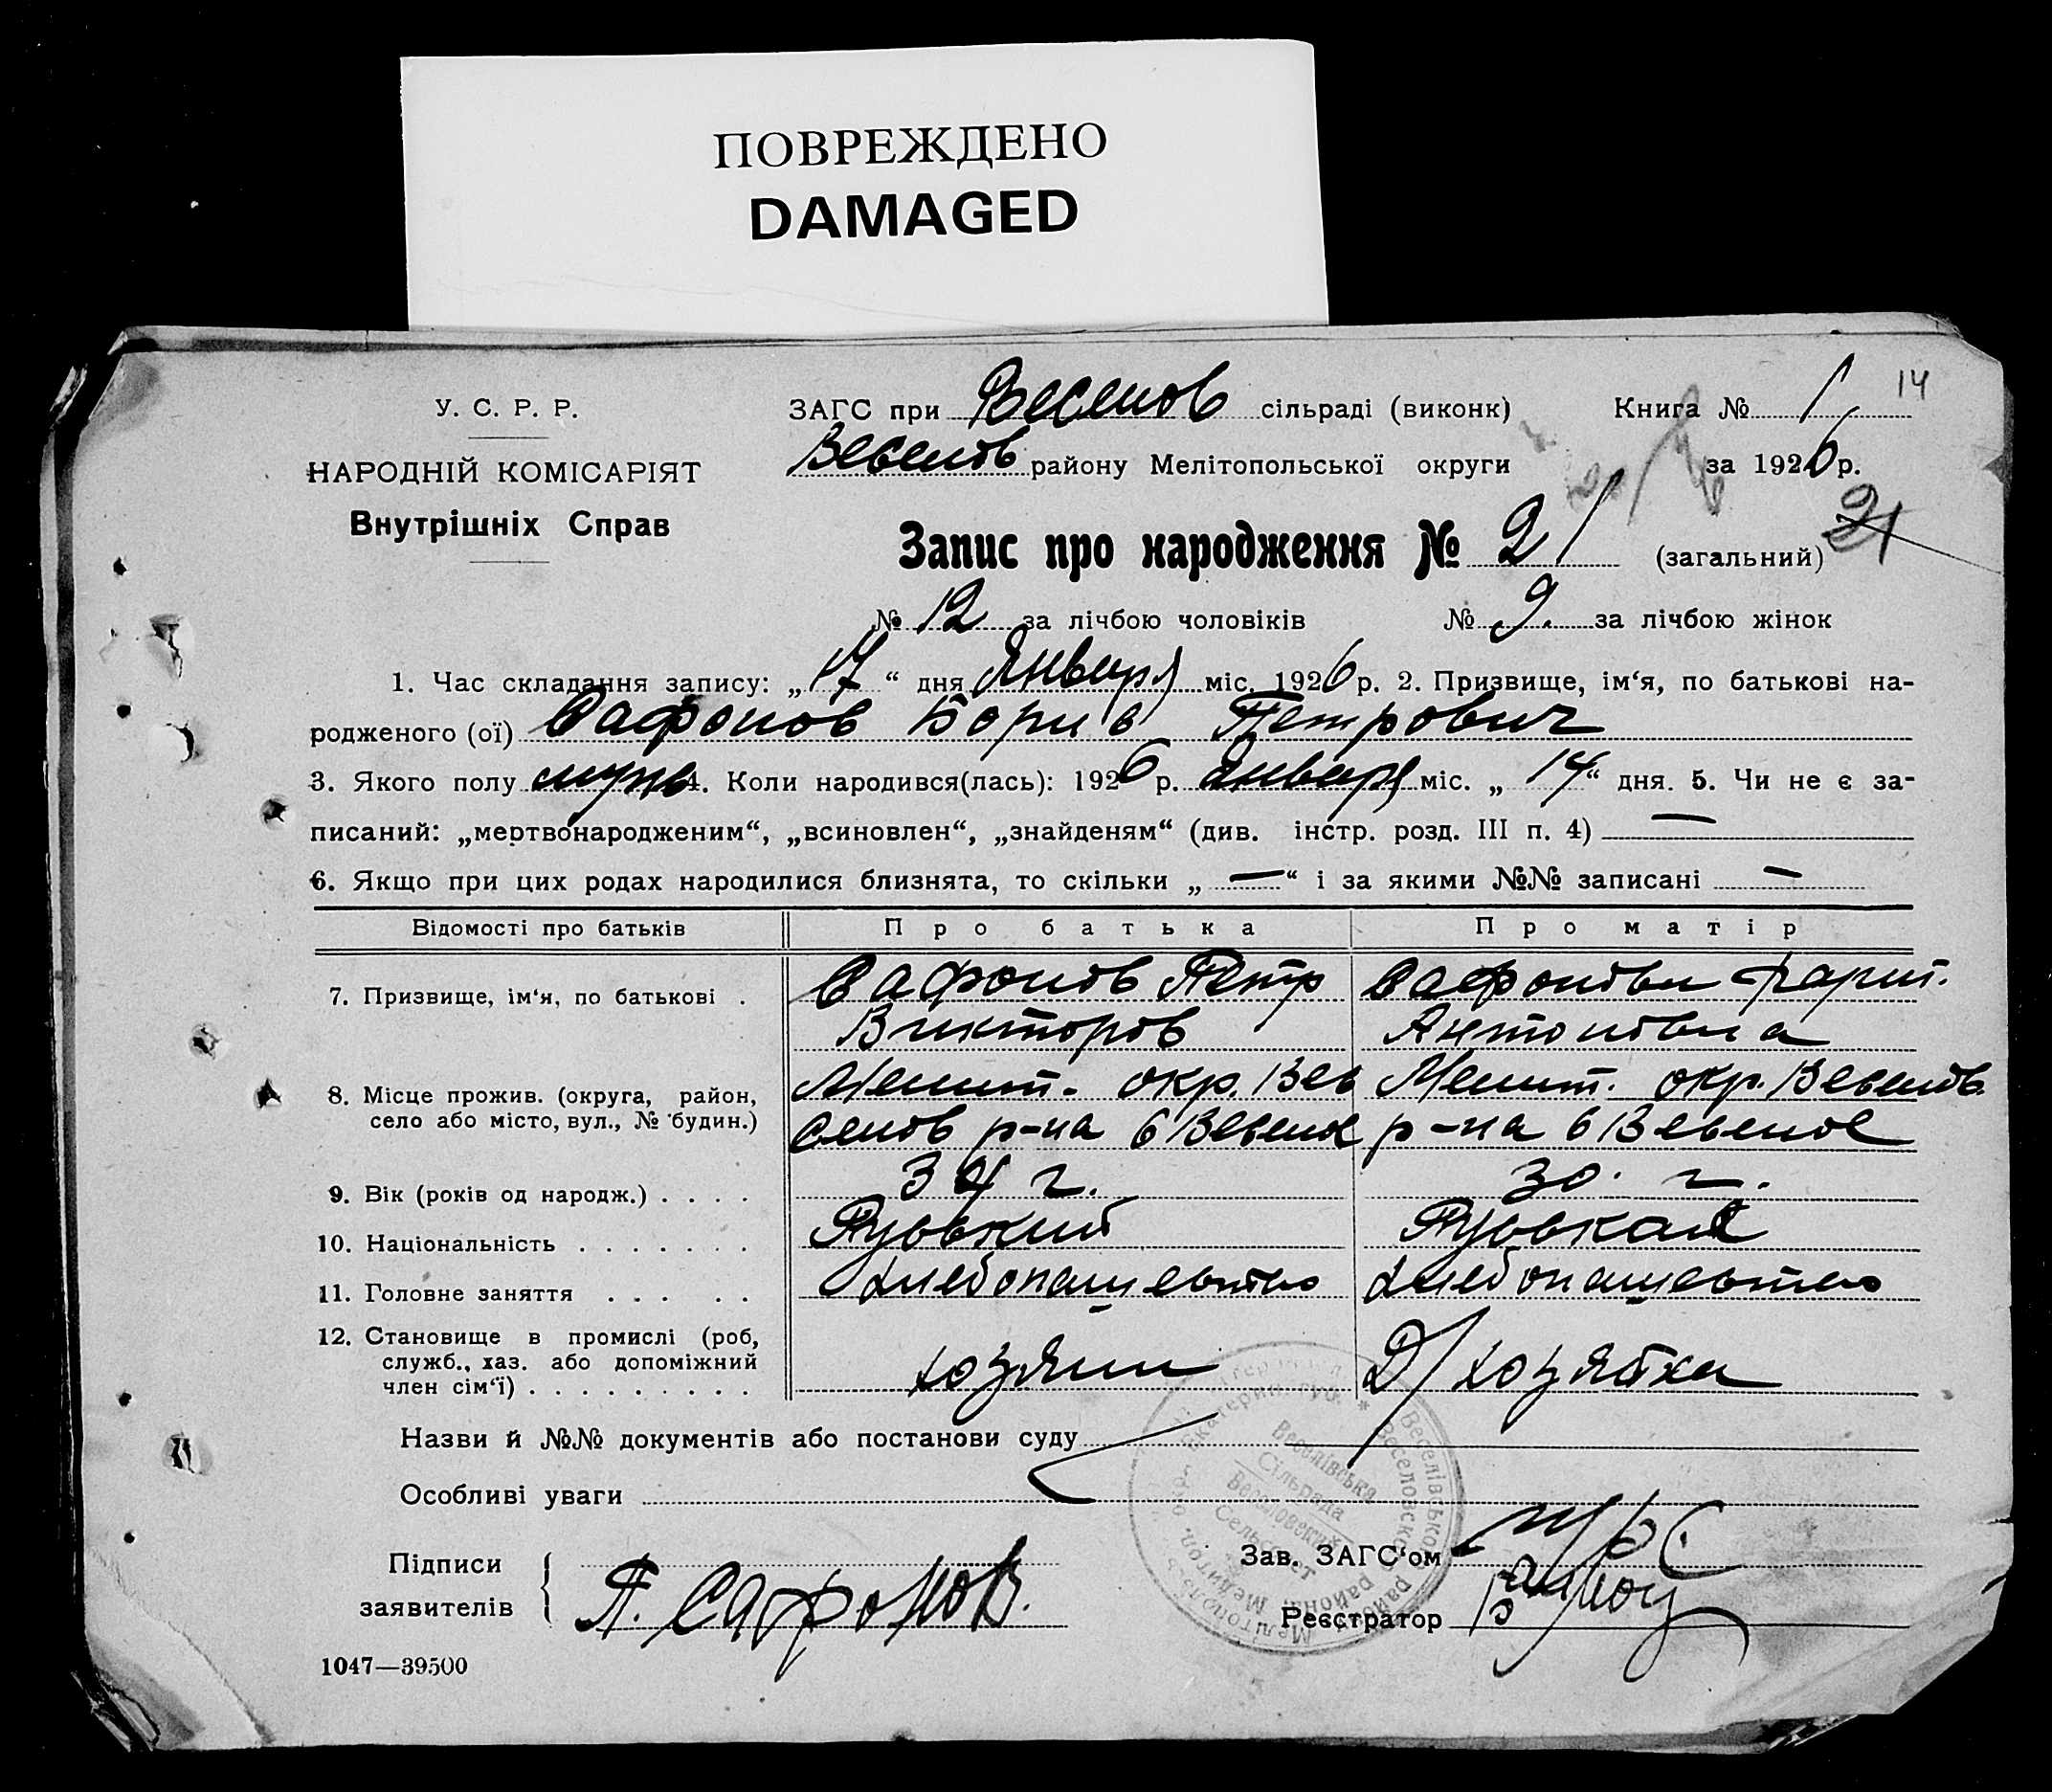 ПОВРЕЖДЕНО
DAMAGED
14
У. С. Р. Р.
ЗАГС при Веселов сільраді (виконк) Книга № 1
НАРОДНІЙ КОМІСАРІЯТ
Веселов району Мелітопольської округи за 1926 р.
Внутрішніх Справ
Запис про народження № 21 (загальний) 21
№ 12 за лічбою чоловіків № 9. за лічбою жінок
1. Час складання запису: „17“ дня Января міс. 1926 р. 2. Призвище, ім‘я, по батькові на-
родженого (ої) Сафонов Борис Петрович
3. Якого полу муж 4. Коли народився(лась): 1926 р. Января міс. „14“ дня. 5. Чи не є за-
писаний: „мертвонародженим“, „всиновлен“, „знайденям“ (див. інстр. розд. III п. 4) —
6. Якщо при цих родах народилися близнята, то скільки „—“ і за якими №№ записані —
Відомості про батьків Про батька Про матір
7. Призвище, ім‘я, по батькові . Сафонов Петр Сафонова
Викторов Антоновна
8. Місце прожив. (округа, район, Мелит. окр. Вес Мелит. окр. Веселов.
село або місто, вул., № будин.) селов р-на с Веселое р-на с Веселое
9. Вік (років од народж.) . . . . 34 г. 30. г.
10. Національність . . . . . . . Русский Русская
11. Головне заняття . . . . . хлебопашество хлебопашество
12. Становище в промислі (роб,
служб., хаз. або допоміжний хозяин Д/хозяйка
член сім‘ї) . . . . . . . . .
Назви й №№ документів або постанови суду
Особливі уваги
Веселівська
Сільрада
Веселовский
Сельсовет
Підписи Зав. ЗАГС‘ом
заявителів П. Сафонов. Реєстратор
1047—39500